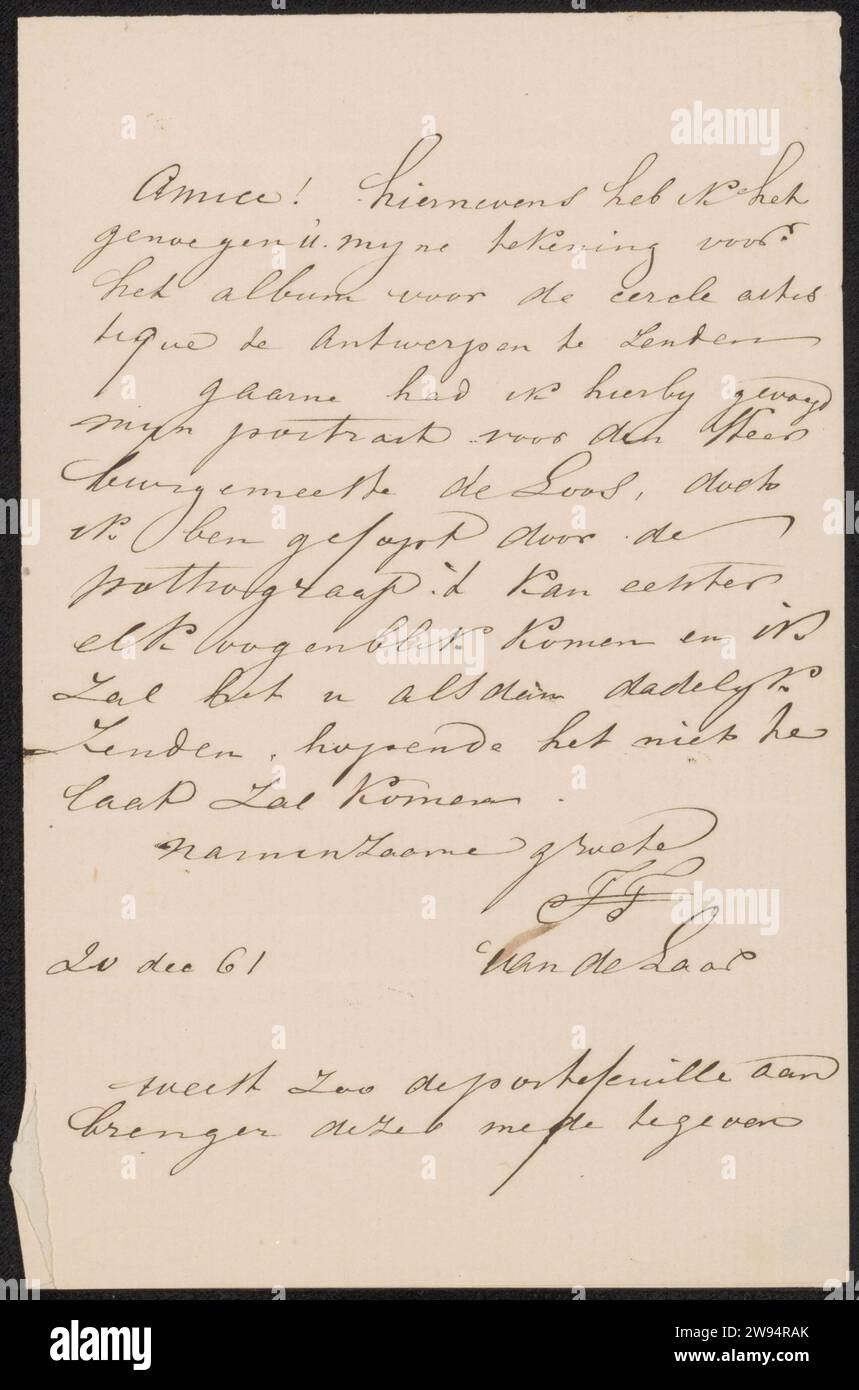 Amice! hiernevens heb ik het
genoegen U. myne tekening voor
het album voor de cercle artis
tique te Antwerpen te zenden
gaarne had ik hierby gevoegd
mijn portrait voor den Heer
burgemeester de Loos, doch
ik ben gefopt door de
photograaf 't kan echter
elk oogenblik komen en ik
zal het u alsdan dadelyk
zenden, hopende het niet te
laat zal komen.
namenzaame groete
TT
van de Laar
20 dec 61
weest zoo de portefeuille aan
brenger dezes mede te geven
alamy
Image ID: 2W94RAK
www.alamy.com